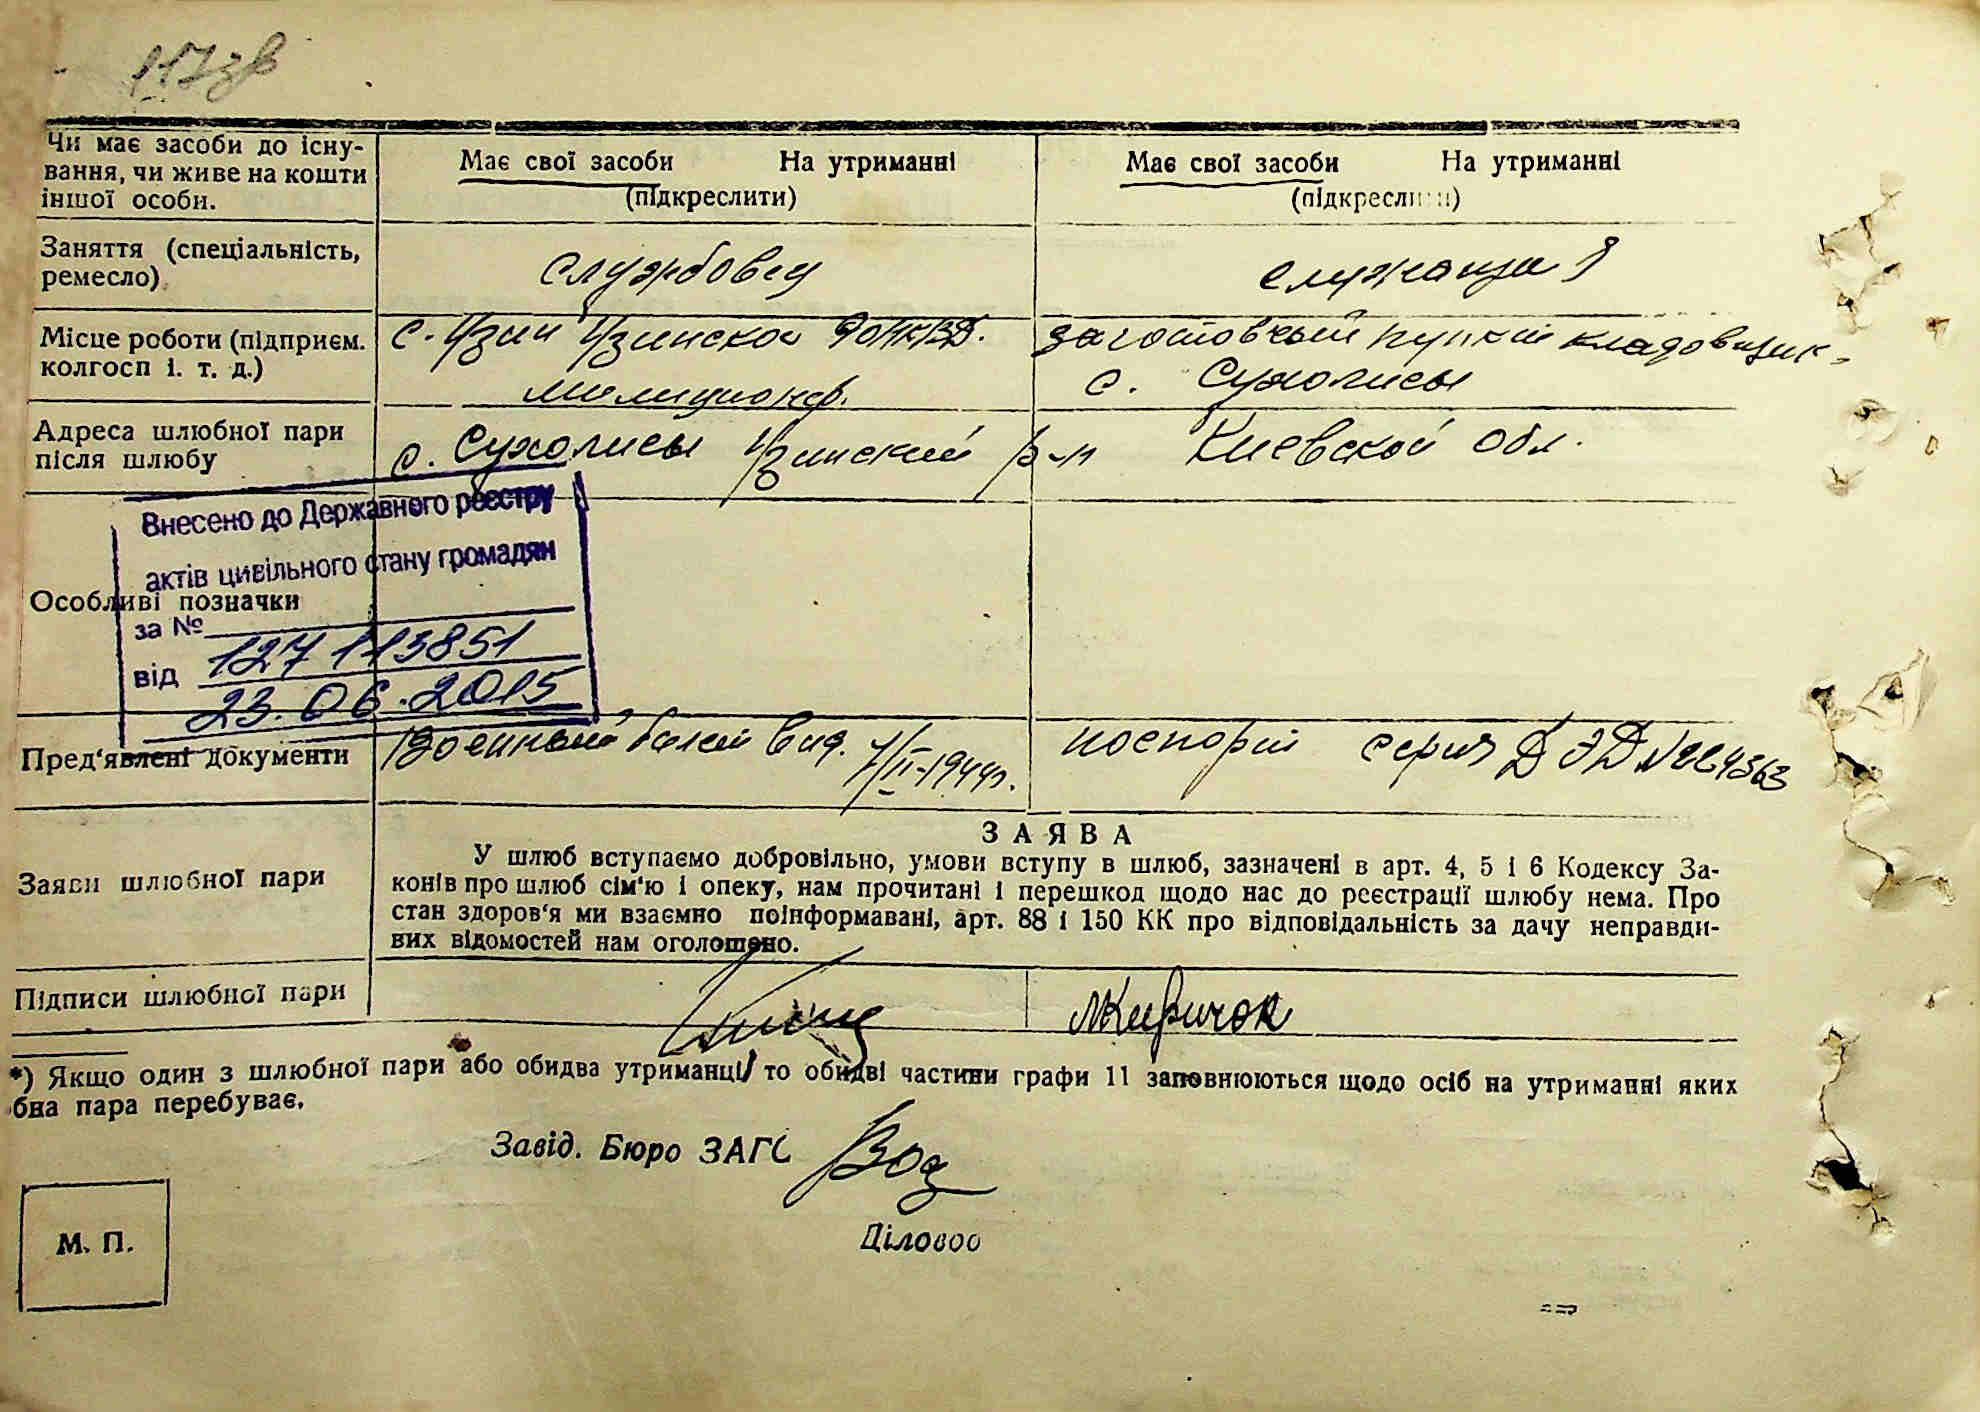 117зв
Чи має засоби до існу-
вання, чи живе на кошти
іншої особи.
Має свої засоби На утриманні
(підкреслити)
Має свої засоби На утриманні
(підкреслити)
Заняття (спеціальність,
ремесло)
службовец
служащая
Місце роботи (підприєм.
колгосп і. т. д.)
с. Узин Узинское РО НКВД.
милиционер.
заготовчый пункт кладовщик
с. Сухолисы
Адреса шлюбної пари
після шлюбу
с. Сухолисы Узинский р-н Киевской обл.
Внесено до Державного реєстру
актів цивільного стану громадян
за №
127113851
від
23.06.2015
Особливі позначки
Пред'явлені документи
Военный билет выд. 7/II-1944г.
поспорт серия
Заяви шлюбної пари
ЗАЯВА
У шлюб вступаємо добровільно, умови вступу в шлюб, зазначені в арт. 4, 5 і 6 Кодексу За-
конів про шлюб сім'ю і опеку, нам прочитані і перешкод щодо нас до реєстрації шлюбу нема. Про
стан здоров'я ми взаємно поінформавані, арт. 88 і 150 КК про відповідальність за дачу неправди-
вих відомостей нам оголошено.
Підписи шлюбної пари
МКиричок
*) Якщо один з шлюбної пари або обидва утриманці, то обидві частини графи 11 заповнюються щодо осіб на утриманні яких
бна пара перебуває.
Завід. Бюро ЗАГС
Діловод
М. П.